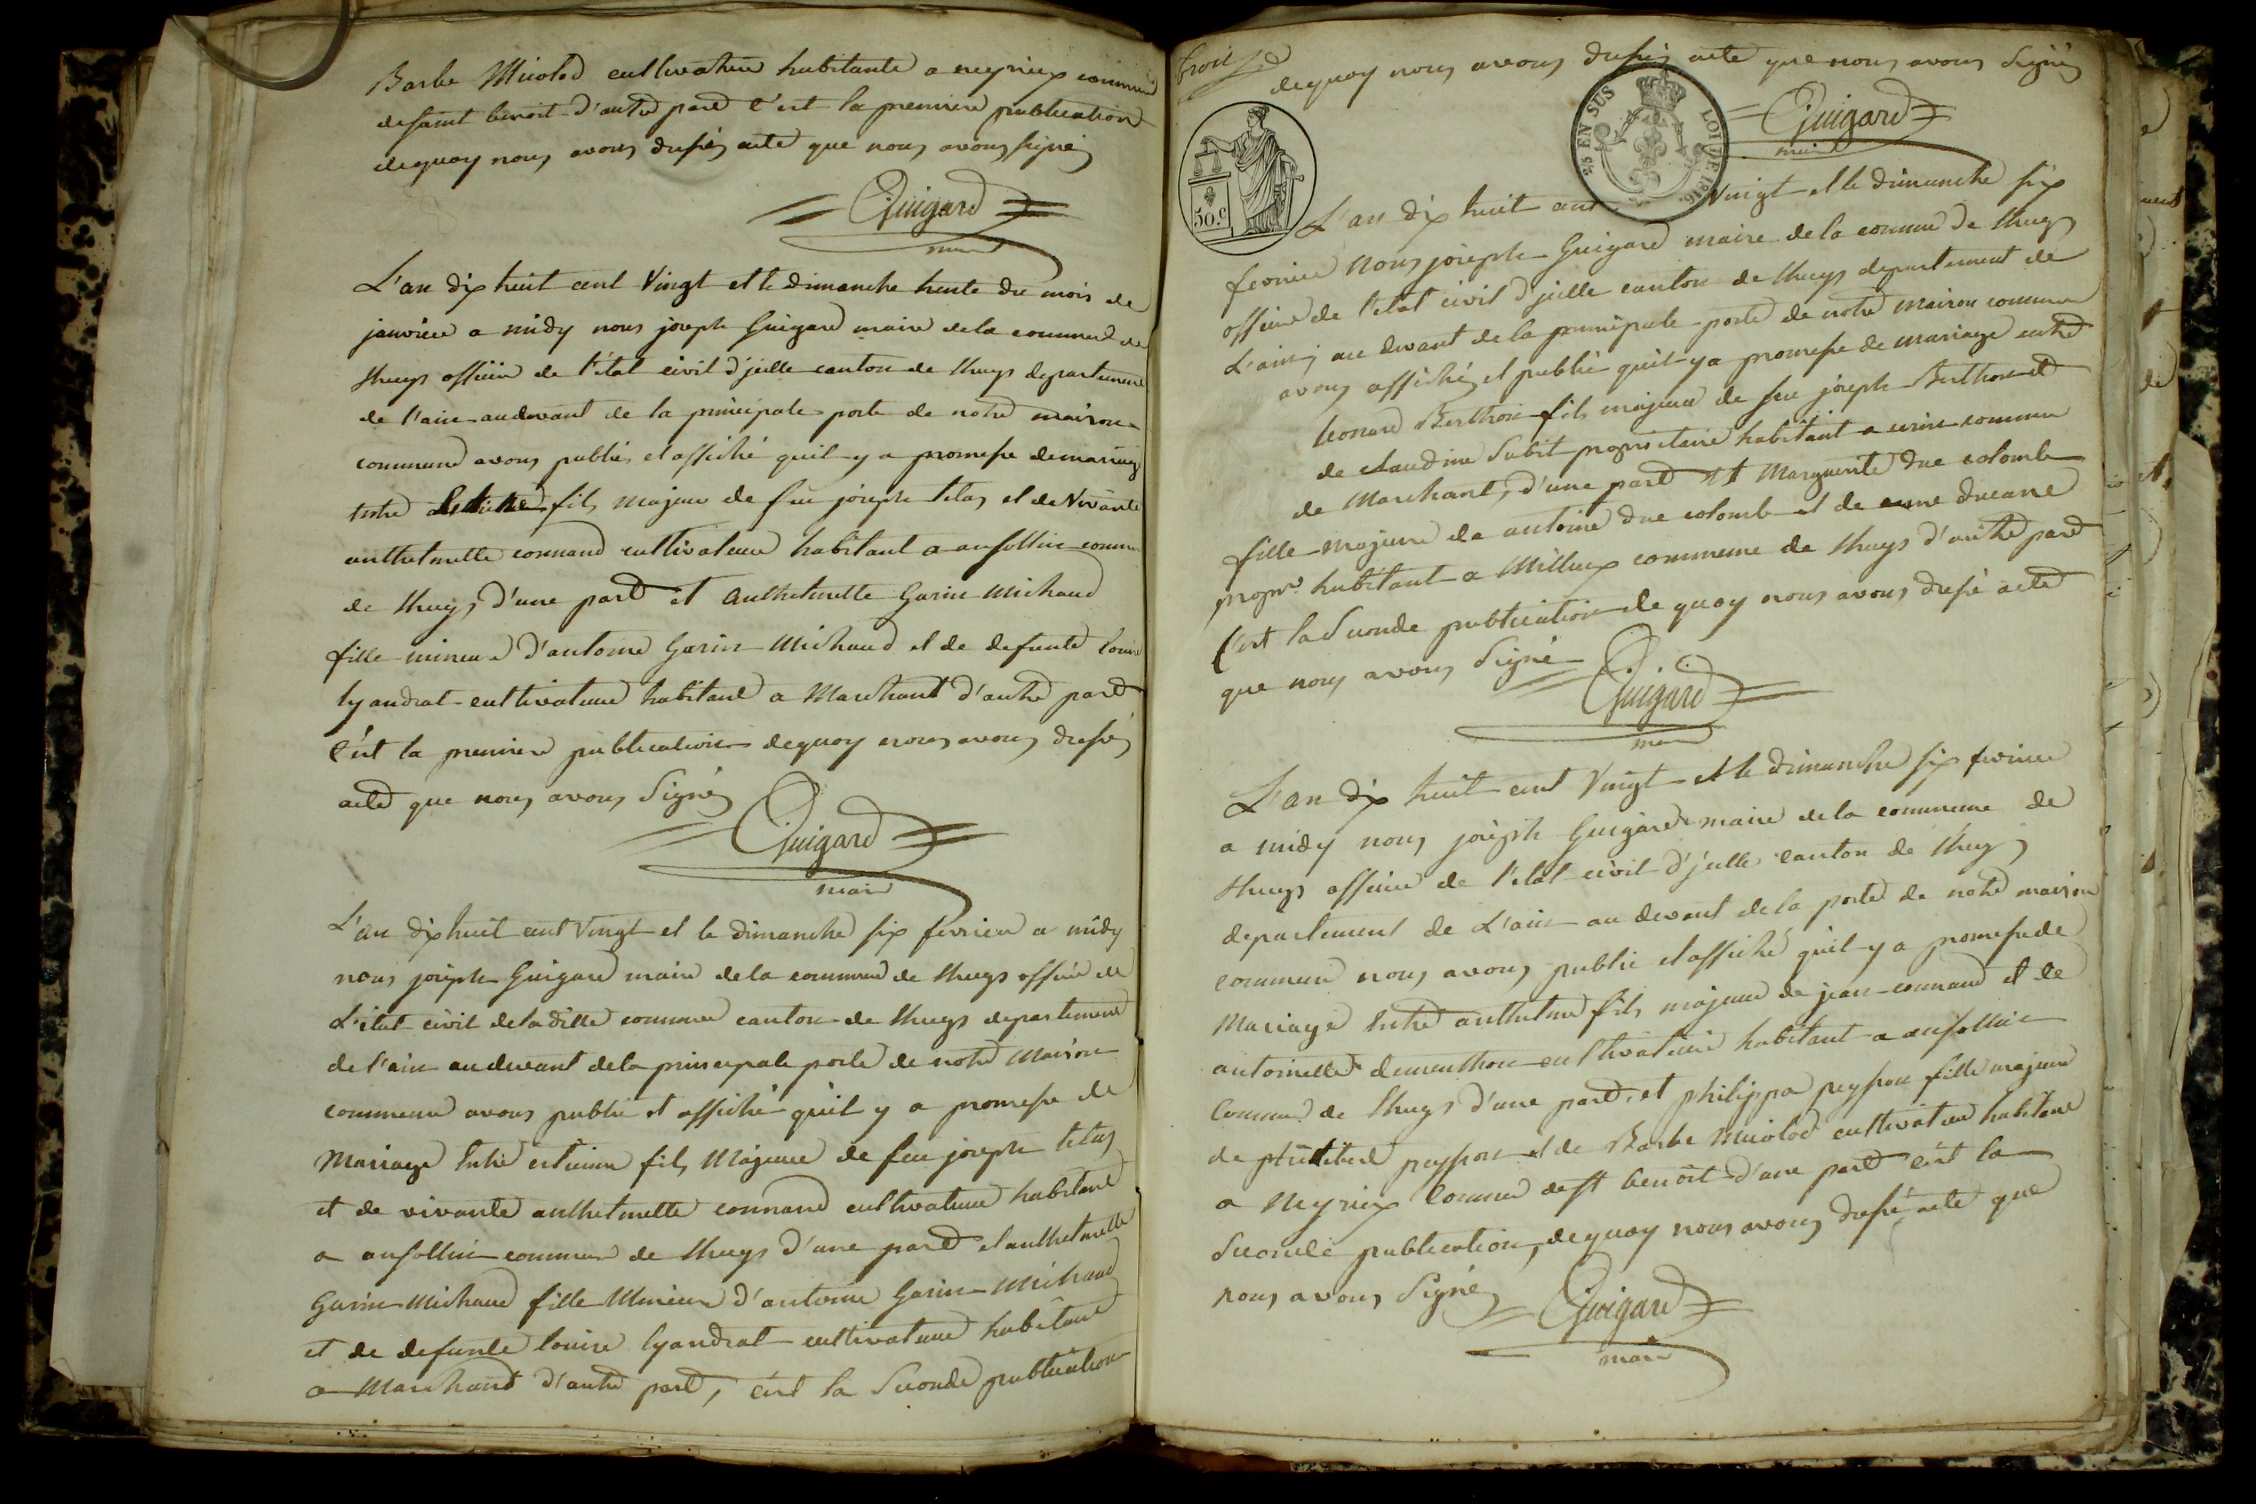 Barbe Micolod cultivateur habitante a neyrieu commune
de saint benoit d'autre part c'est la premiere publication
de quoy nous avons dressés acte que nous avons signés
Guigard
maire
L'an dix huit cent Vingt et le dimanche trente du mois de
janvier a midy nous joseph Guigard maire de la commune de
lhuys officier de l'état civil d'jcelle canton de lhuys departement
de l'ain au devant de la principale porte de notre maison
commune avons publiés et affiché quil y a promesse de mariage
Entre fils majeur de feu joseph titas et de Vivante
anthelmette connand cultivateur habitant a ansollin commune
de lhuys d'une part et anthelmette Garin Michaud
fille mineure d'antoine Garin Michaud et de defunte louise
lyandrat cultivateur habitant a Marchant d'autre part
C'est la premiere publication de quoy nous avons dressés
acte que nous avons Signés
Guigard
maire
L'an dix huit cent Vingt et le dimanche six fevrier a midy
nous joseph Guigard maire de la commune de lhuys officier de
L'état civil de la ditte commune canton de lhuys departement
de l'ain au devant de la principale porte de notre Maison
commune avons publié et affiché quil y a promesse de
Mariage Entre estienne fils Majeur de feu joseph titas
et de vivante anthelmette connand cultivateur habitant
a ansollin commune de lhuys d'une part et anthelmette
Garin Michaud fille Mineure d'antoine Garin Michaud
et de defunte louise lyandrat cultivateur habitant
a Marchant d'autre part, c'est la Seconde publication
troit
de quoy nous avons dressés acte que nous avons Signés
Guigard
maire
25 EN SUS LOI DE 1816
50.c
L'an dix huit cent Vingt et le dimanche six
fevrier Nous joseph Guigard maire de la commune de lhuys
officier de l'etat civil d'jcelle canton de lhuys departement de
L'ain, au devant de la principale porte de notre maison commune
avons affichés et publié quil y a promesse de mariage entre
leonard Berthon fils majeur de feu joseph Berthon et
de claudine Subit proprietaire habitant a cerin commune
de Marchant, d'une part et Marguerite duc colomb
fille majeure de antoine duc colomb et de anne ducarre
propre. habitant a Millieux commune de lhuys d'autre part
C'est la Seconde publication de quoy nous avons dressé acte
que nous avons Signé
Guigard
maire
L'an dix huit cent Vingt et le dimanche six fevrier
a midy nous joseph Guigard maire de la commune de
lhuys officier de l'etat civil d'jcelle canton de lhuys
departement de L'ain au devant de la porte de notre maison
commune nous avons publié et affiché quil y a promesse de
Mariage Entre anthelme fils majeur de jean connand et de
antoinette dementhon cultivateur habitant a ansollin
Commune de lhuys d'une part, et philippa peysson fille majeure
de peysson et de Barbe Micolod cultivateur habitant
a Neyrieux Commune de st benoit d'une part c'est la
Seconde publication, de quoy nous avons dressé acte que
nous avons Signé
Guigard
maire